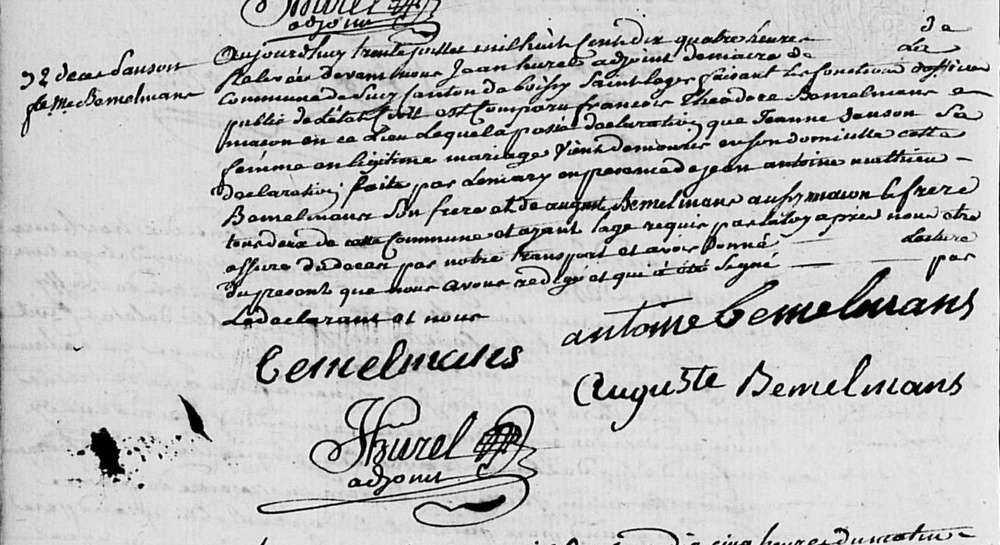 Jhurel
adjoint
32 deces Sanson
fe Me Bemelmans
aujourdhuy trente juillet mil huit Cent dix quatre heures de
Relevée devant nous Jean hurel adjoint du maire de La
Commune de Sucy Canton de boissy Saint leger faisant les fonctions dofficier
public de létat Civil est Comparu francois Theodore Bemelmans
macon en ce Lieu Lequel a passé declaration que Jeanne Sanson Sa
femme en légitime mariage vient demourir en son domicille cette
declaration faite par Lemary en presence de jean antoine mathieu
Bemelmans Son frere et de august Bemelmans aussy macon le frere
tous deux de cette Commune et ayant lage requis par la loy apres nous etre
assuré du deces par notre transport et avons donné Lecture
du present que nous avons redigé et qui a été Signé par
Le declarant et nous
antoine Bemelmans
Bemelmans
auguste Bemelmans
Jhurel
adjoint
cinq heures du matin